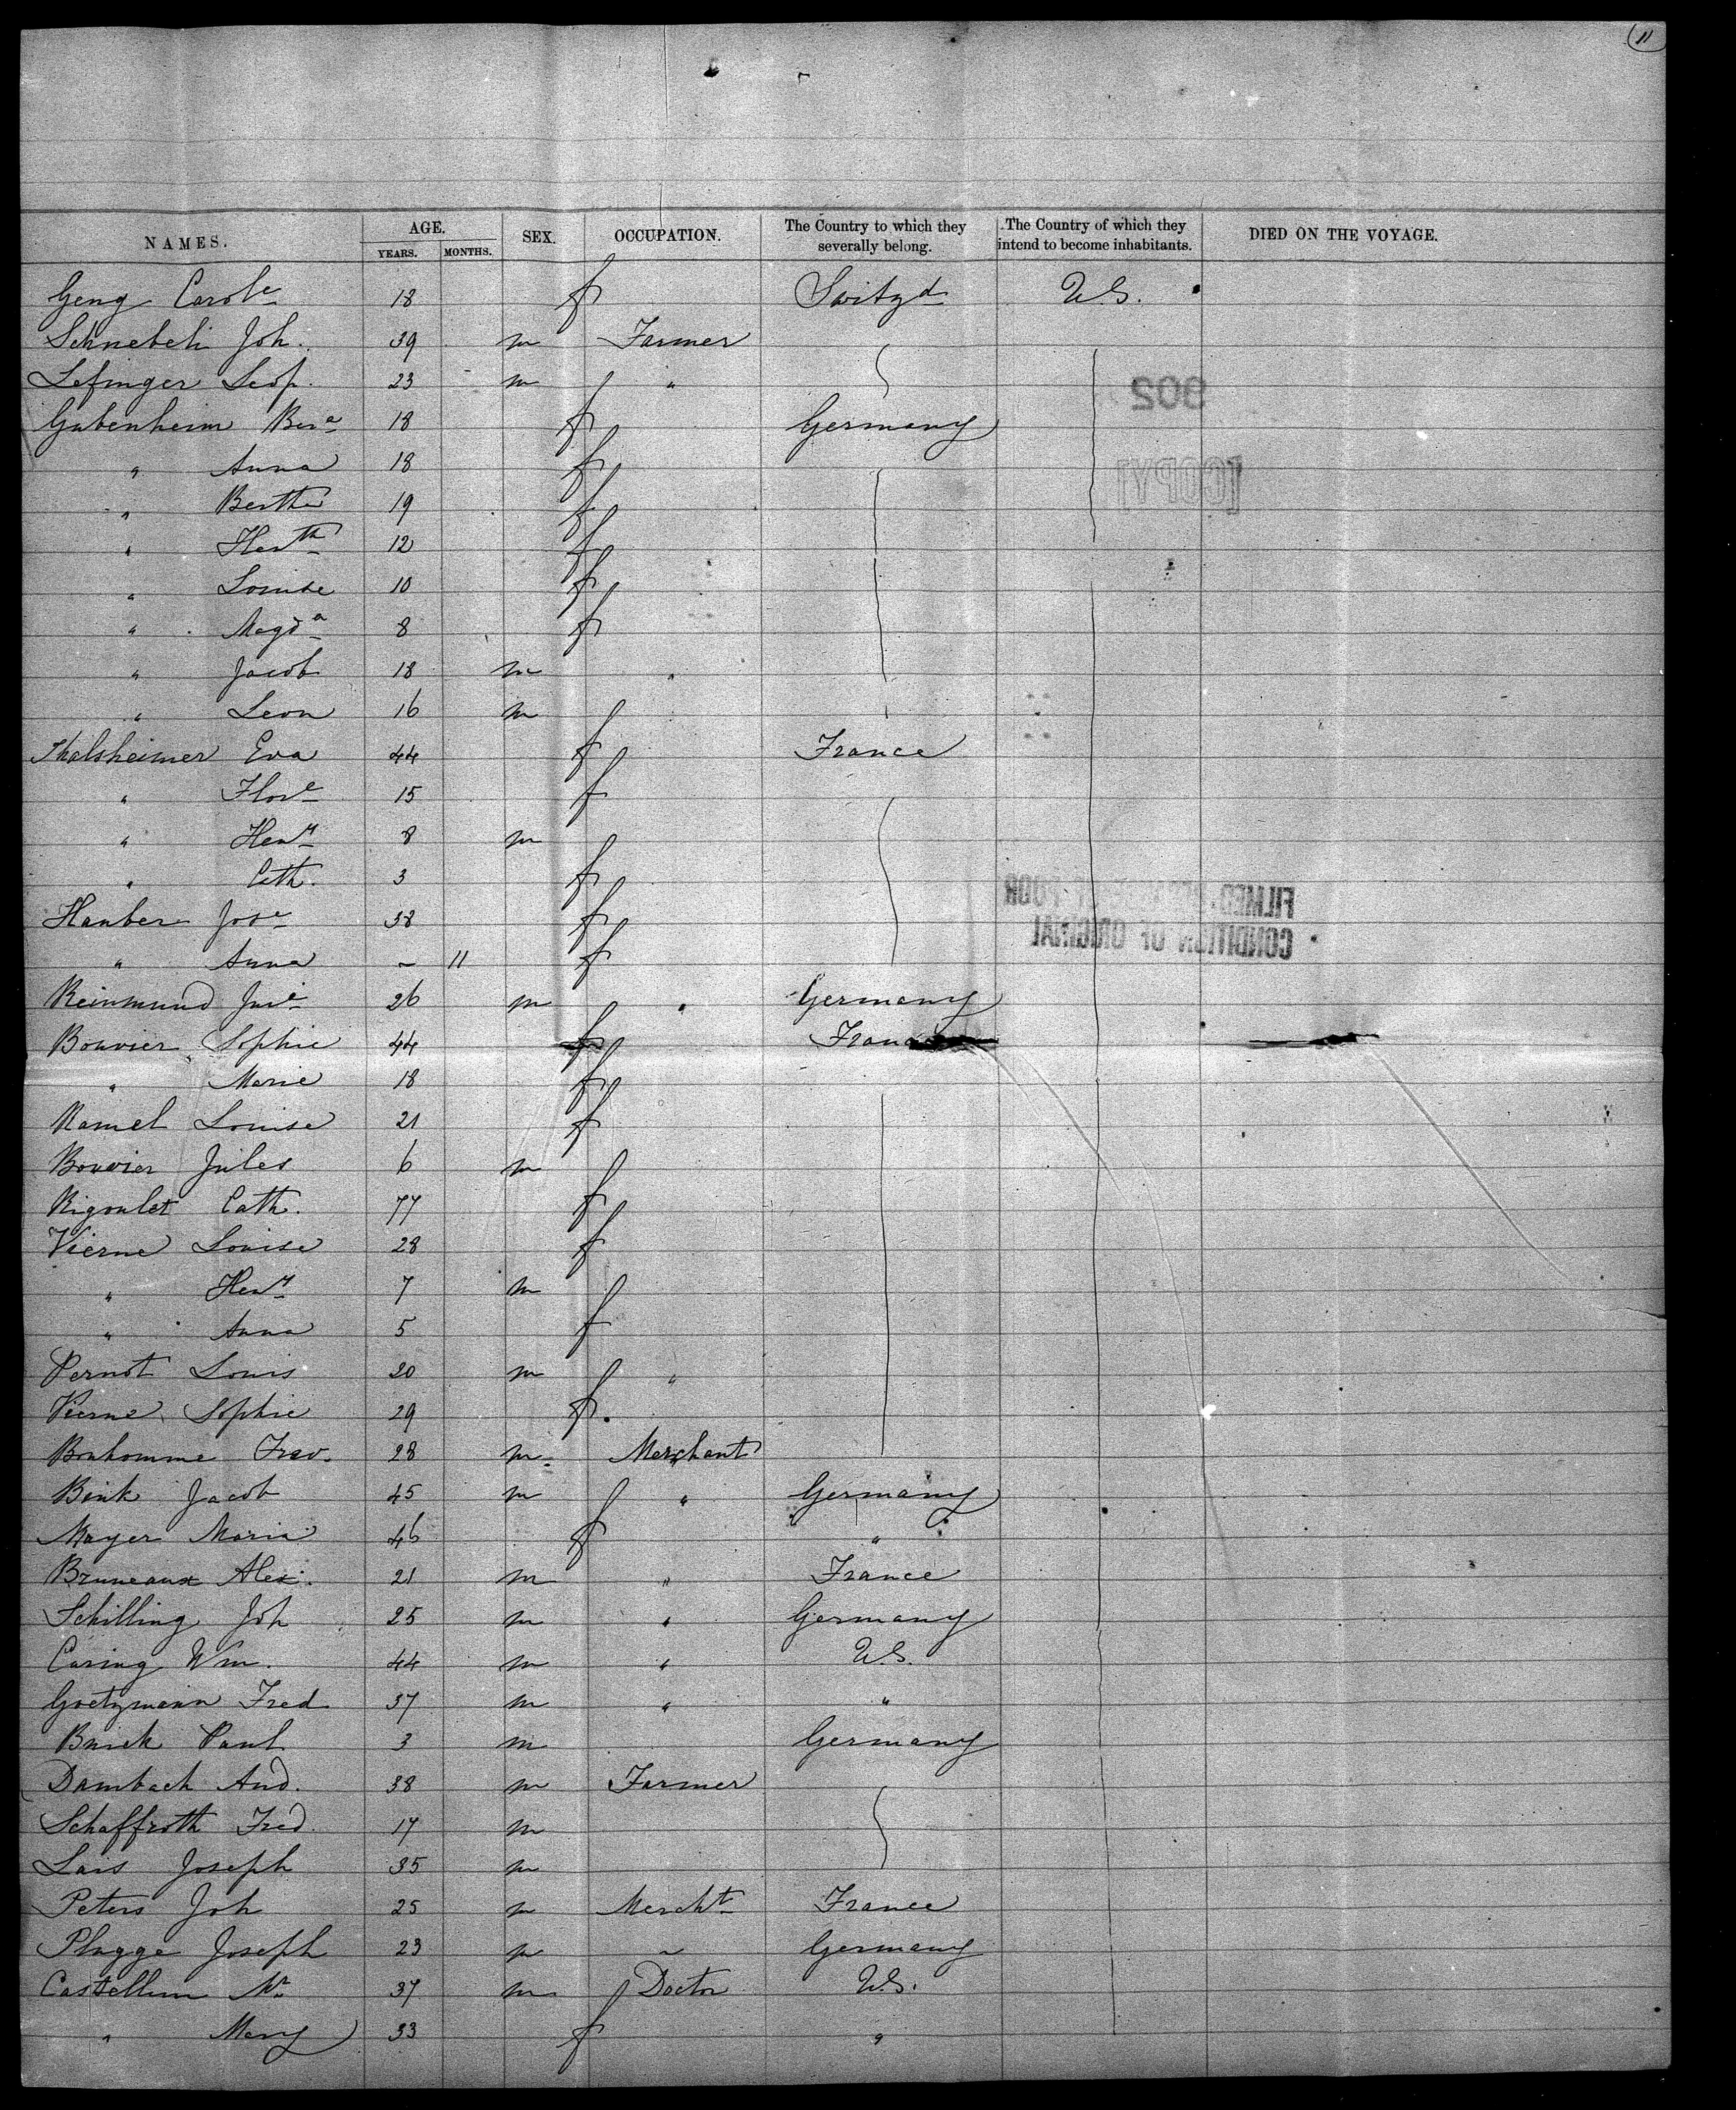 11
NAMES. AGE. SEX. OCCUPATION. The Country to which they severally belong. The Country of which they intend to become inhabitants. DIED ON THE VOYAGE.
YEARS. MONTHS.
Geng Carole 18 f Switzd U.S.
Schnebeli Joh. 39 m Farmer
Lefinger Leop. 23 m "
902
Gubenheim Bere 18 f Germany
" Anna 18 f
[COPY]
" Berthe 19 f
" Henth 12 f
" Louise 10 f
" Magda 8 f
" Jacob 18 m "
" Leon 16 m
Thalsheimer Eva 44 f France
" Flore 15 f
" Heny 8 m
" Cath. 3 f
FILMED BECAUSE OF POOR
CONDITION OF ORIGINAL
Hauber Jose 38 f
" Anna – 11 f
Reinmund 26 m " Germany
Bouvier Sophie 44 f France
" Marie 18 f
Ramel Louise 21 f
Bouvier Jules 6 m
Rigoulet Cath. 77 f
Vierne Louise 28 f
" Heny 7 m
" Anna 5 f
Pernot Louis 20 m "
Vierne Sophie 29 f
Bonhomme 28 m Merchant
Bink Jacob 45 m " Germany
Mayer Maria 46 f "
Bruneaux Alex. 21 m " France
Schilling Joh 25 m " Germany
Caring Wm. 44 m " U.S.
Goetzmann Fred 37 m " "
Paul 3 m Germany
Dambach And. 38 m Farmer
Schaffroth Fred. 17 m
Lais Joseph 35 m
Peters Joh 25 m Mercht France
Plugge Joseph 23 m ~ Germany
Castellun Mr 37 m Doctor U.S.
" Mary 33 f "